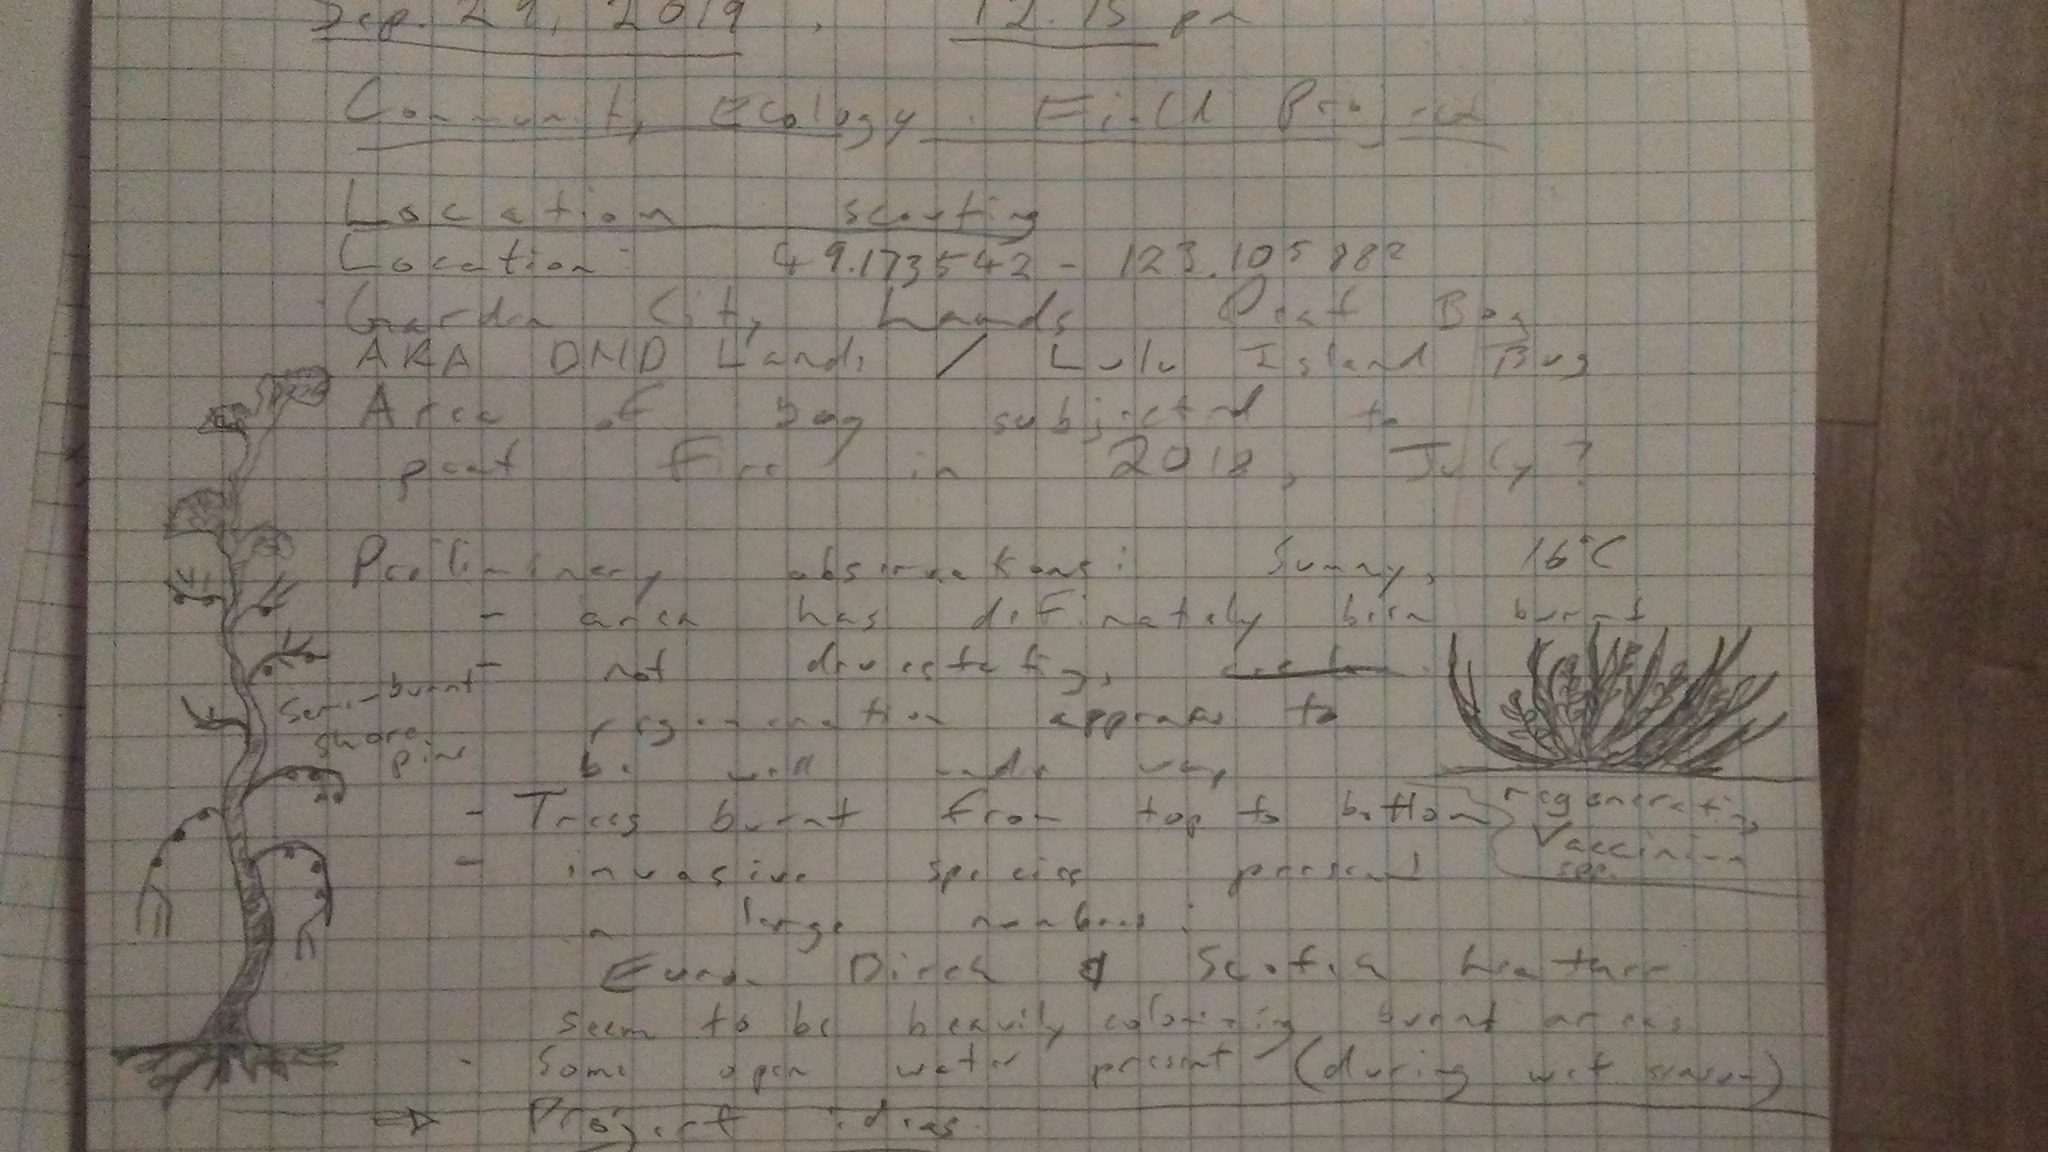 Sep. 29, 2019, 12:15 pm
Community Ecology: Field Project
Location scouting
Location: 49.173542 - 123.105882
Garden City Lands Peat Bog
AKA DND Lands / Lulu Island Bog
Area of bog subjected to
peat fire in 2018, July?
Preliminary observations: Sunny, 16°C
- area has definately been burnt
- not devestating,
regeneration appears to
be well under way
- Trees burnt from top to bottom
- invasive species present
in large numbers:
Euro. Birch & Scotch heather
seem to be heavily colonizing burnt areas
- Some open water present (during wet season)
→ Project ideas
Semi-burnt
shore
pine
regenerating
Vaccinium
spp.